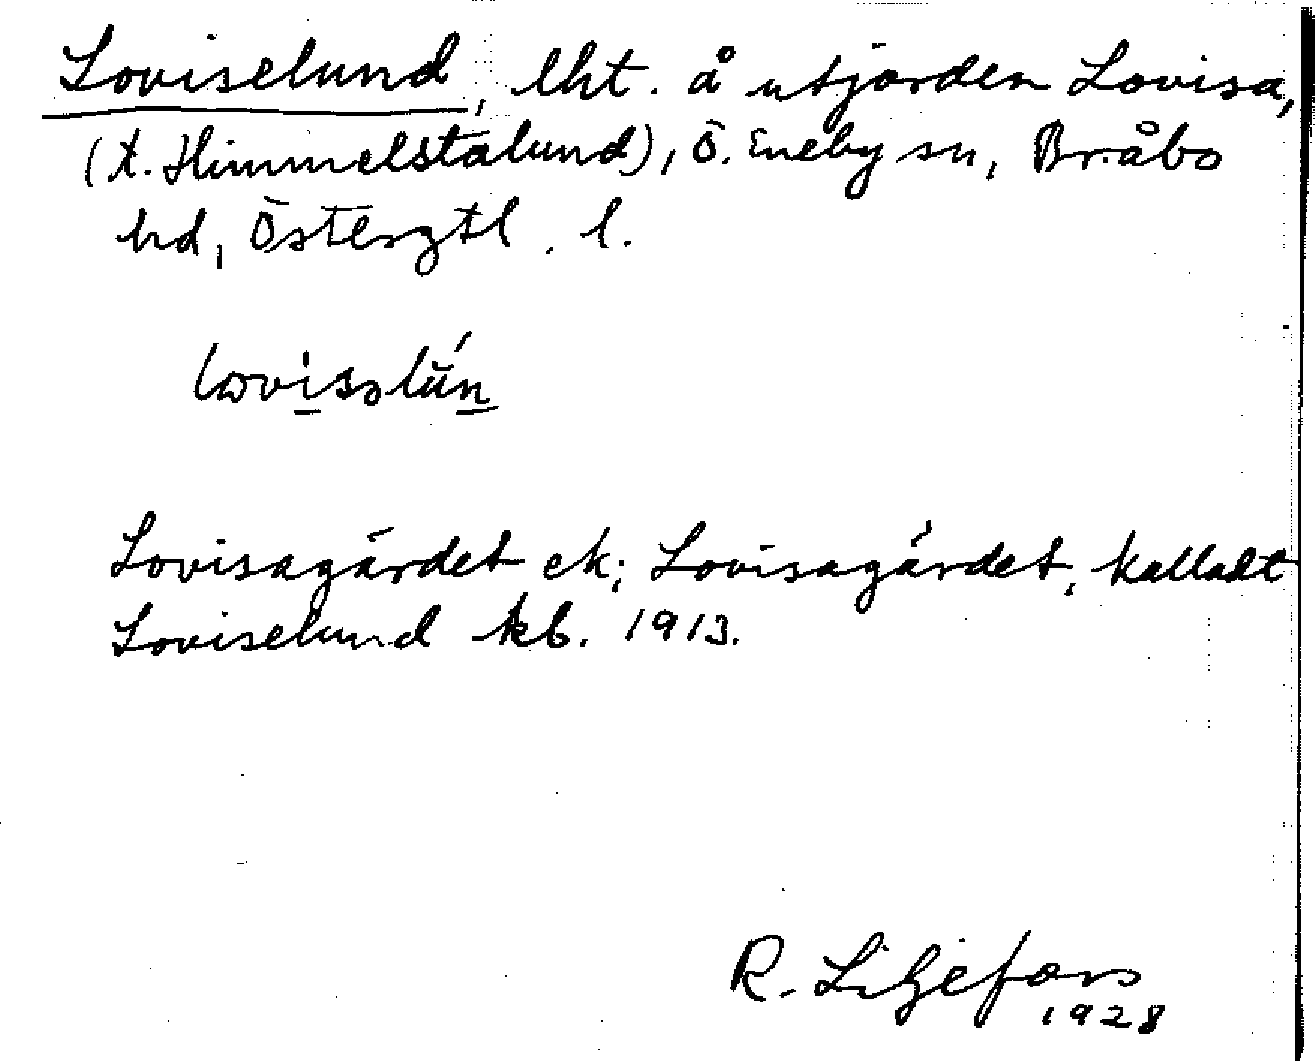 Loviselund, lht. å utjorden Lovisa,
(t. Himmelstalund), Ö. Eneby sn, Bråbo
hd, Östergtl. l.
Lovisagärdet ek; Lovisagärdet, kalladt
Loviselund kb. 1913.
R. Liljefors
1928